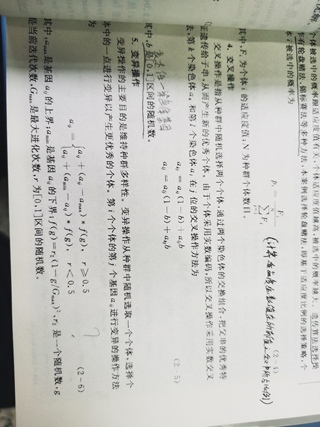 个体被选中的概率跟适应度值有关,个体适应度值越高,被选中的概率越大。遗传算法选择操
作有轮盘赌法、锦标赛法等多种方法,本案例选择轮盘赌法,即基于适应度比例的选择策略,个
体 i 被选中的概率为
(2-4)
其中,Fᵢ 为个体 i 的适应度值;N 为种群个体数目。
4. 交叉操作
交叉操作是指从种群中随机选择两个个体,通过两个染色体的交换组合,把父串的优秀特
征遗传给子串,从而产生新的优秀个体。由于个体采用实数编码,所以交叉操作采用实数交叉
法,第 k 个染色体 aₖ 和第 l 个染色体 aₗ 在 j 位的交叉操作方法为
aₖⱼ = aₖⱼ(1-b) + aₗⱼb
aₗⱼ = aₗⱼ(1-b) + aₖⱼb
(2-5)
其中,b 是[0,1]区间的随机数。
5. 变异操作
变异操作的主要目的是维持种群多样性。变异操作从种群中随机选取一个个体,选择个
体中的一点进行变异以产生更优秀的个体。第 i 个个体的第 j 个基因 aᵢⱼ 进行变异的操作方法
为
aᵢⱼ = { aᵢⱼ + (aᵢⱼ - aₘₐₓ) * f(g), r ≥ 0.5
aᵢⱼ + (aₘᵢₙ - aᵢⱼ) * f(g), r < 0.5
(2-6)
其中,aₘₐₓ 是基因 aᵢⱼ 的上界;aₘᵢₙ 是基因 aᵢⱼ 的下界;f(g) = r₂(1-g/Gₘₐₓ)²,r₂ 是一个随机数,g
是当前迭代次数,Gₘₐₓ 是最大进化次数,r 为[0,1]区间的随机数。